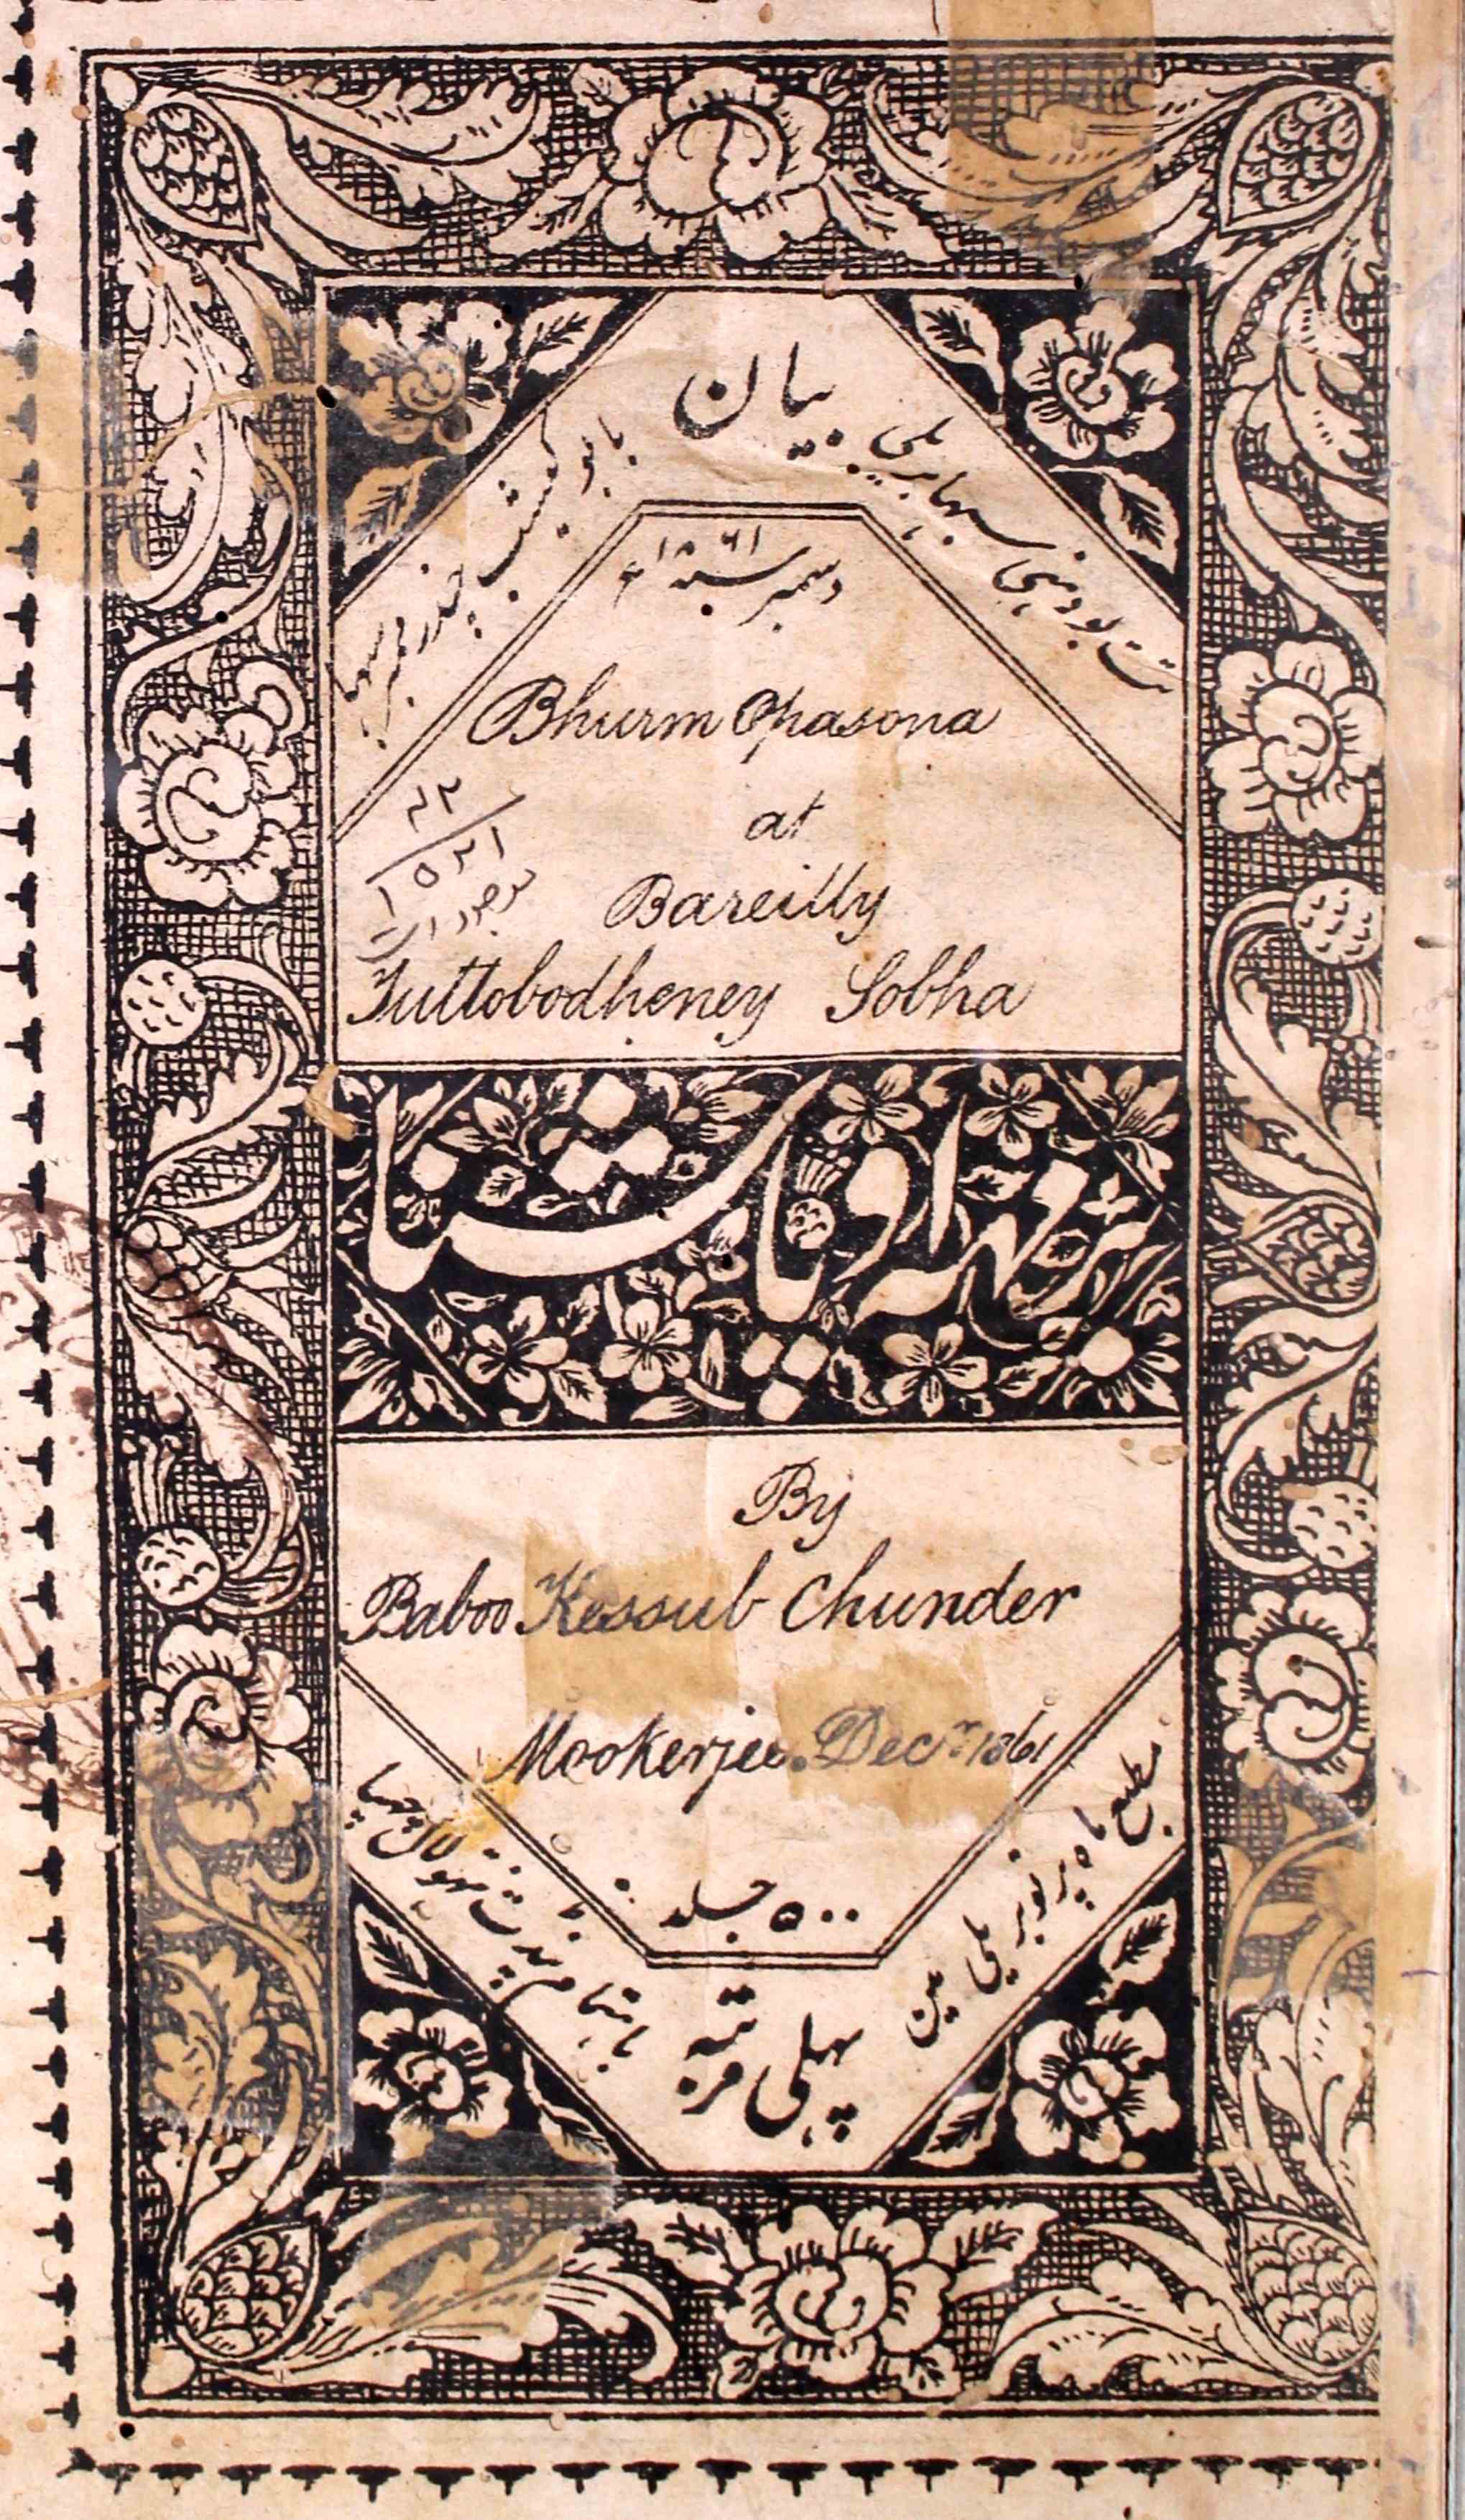 بیان
بابو کیشب چندر ممبر سبھا
تت بودھنی سبھا بریلی
دسمبر سنہ ۱۸۶۱ء
Bhurm Opasona
at
Bareilly
Tuttobodheney Sobha
برہم اوپاسنا
By
Baboo Kessub Chunder
Mookerjee. Decr. 1861
۵۰۰ جلد
مطبع ماہ پرنور بریلی مین
باہتمام پنڈت چھپا
پہلی مرتبہ